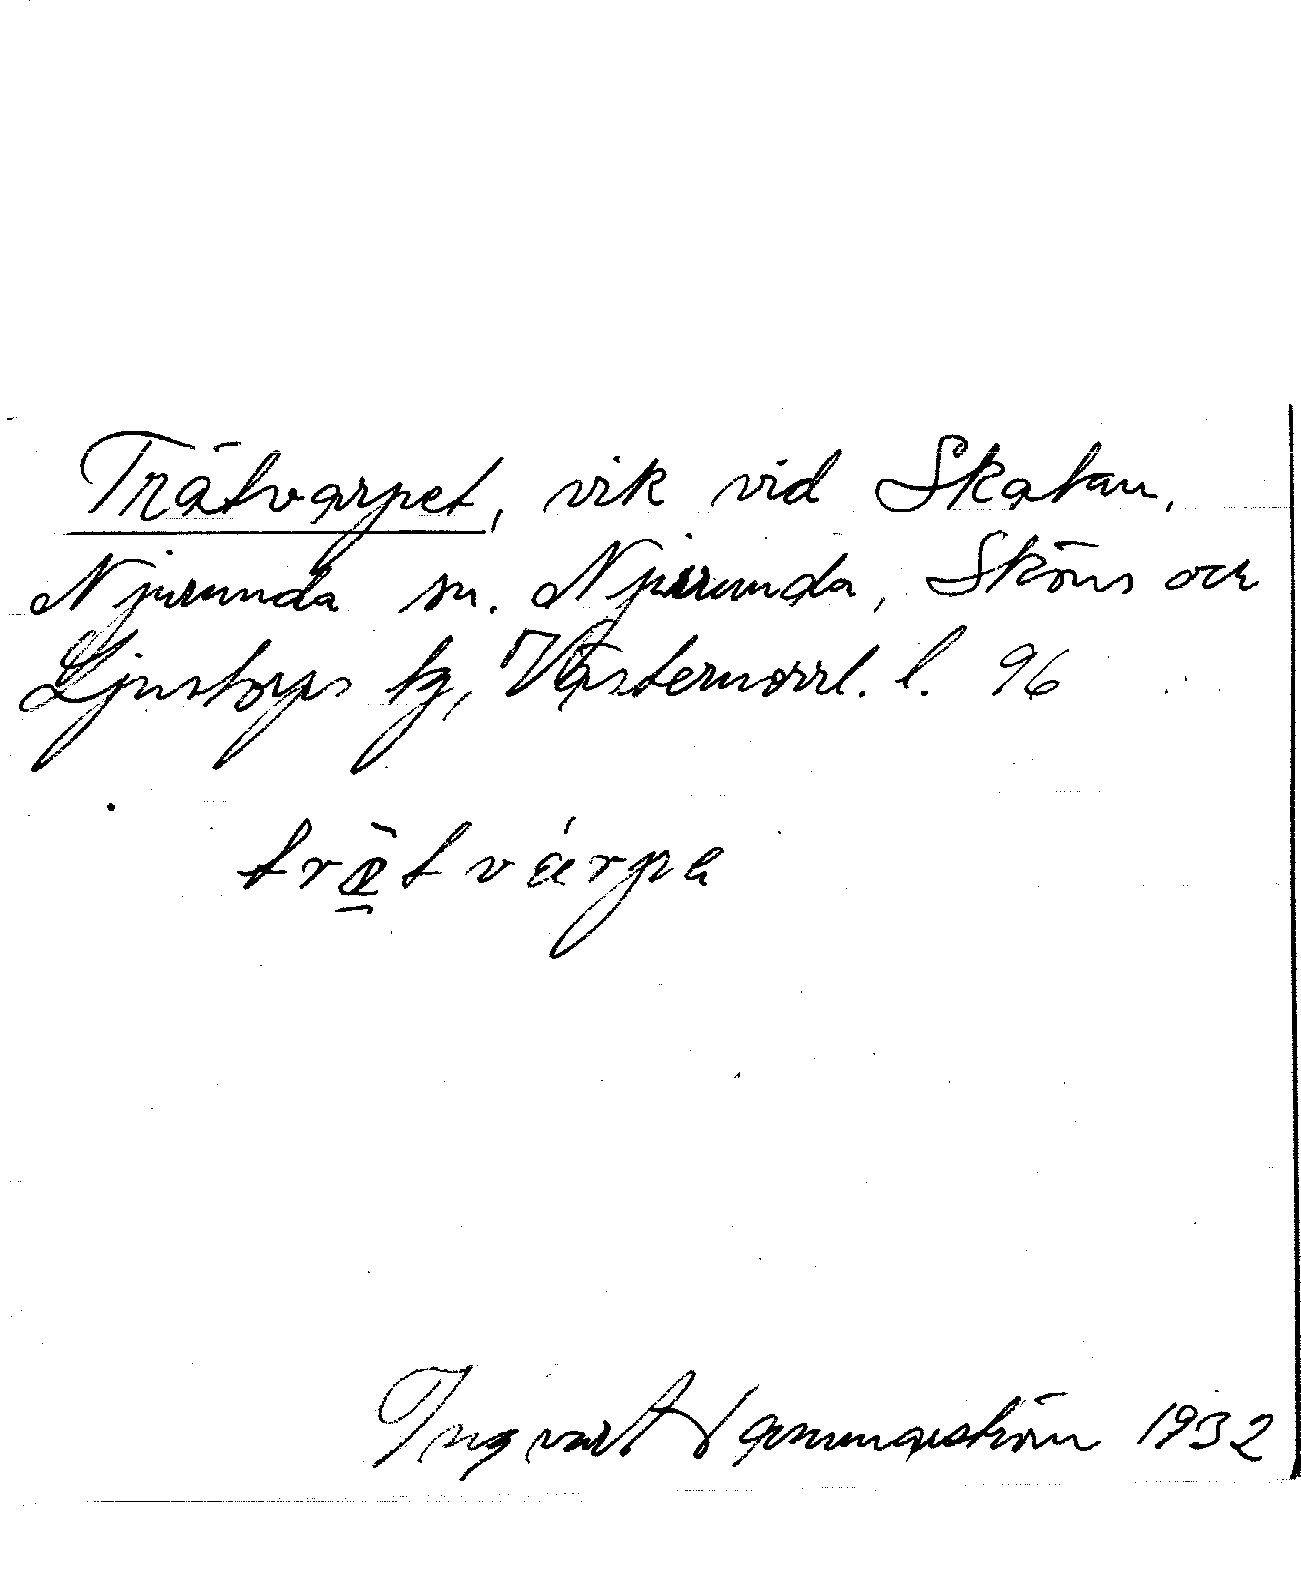 Trätvarpet, vik vid Skatan,
Njurunda sn. Njurunda, Sköns och
Ljustorps tg, Västernorrl. l. 96
trä̱tvárpa
Ingvart 1932